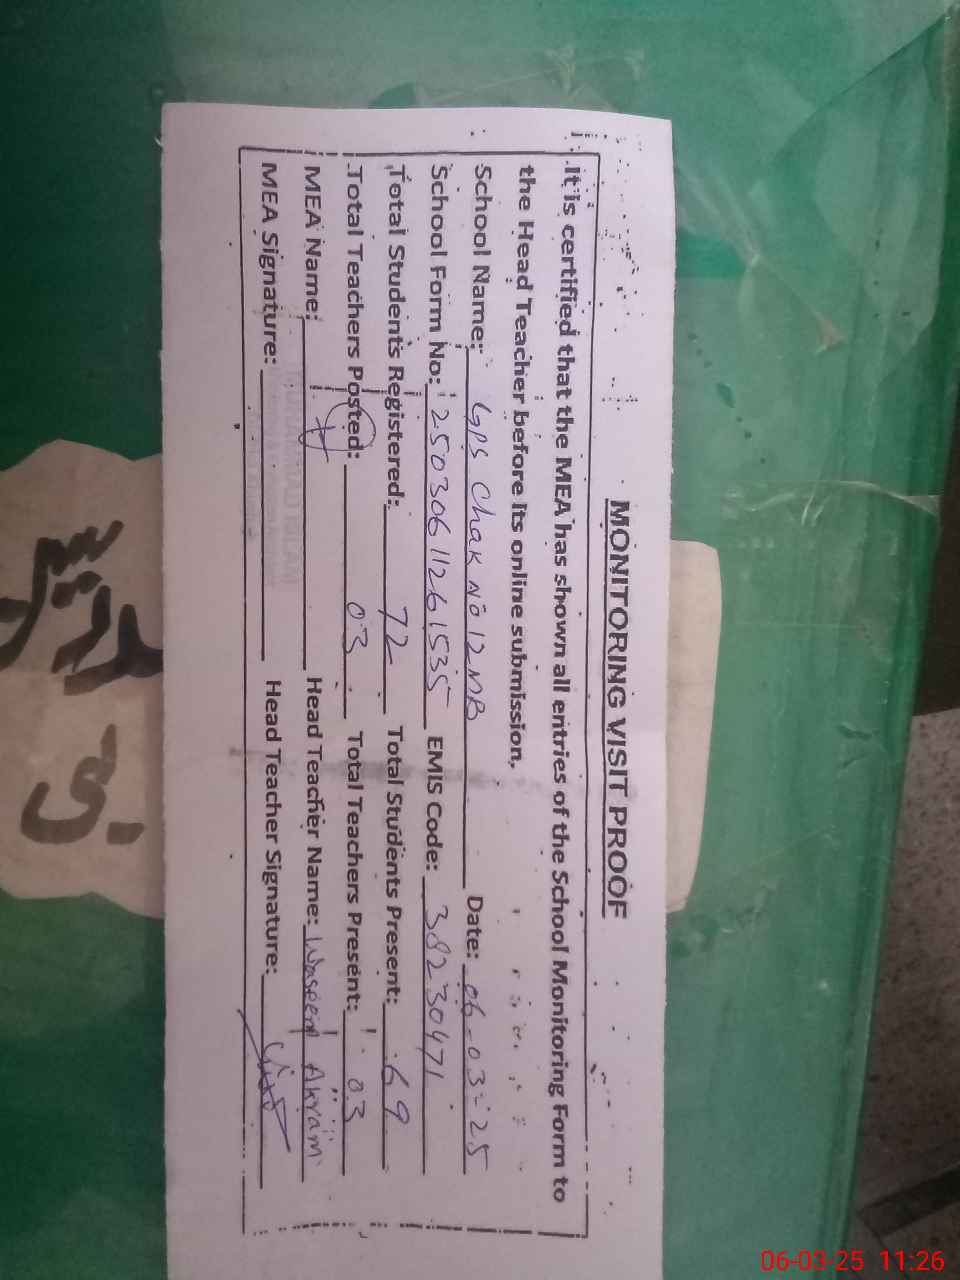 MONITORING VISIT PROOF
It is certified that the MEA has shown all entries of the School Monitoring Form to
the Head Teacher before its online submission.
School Name: GPS Chak No 12 NB Date: 06-03-25
School Form No: 25030611261535 EMIS Code: 38230471
Total Students Registered: 72 Total Students Present: 69
Total Teachers Posted: 03 Total Teachers Present: 03
MEA Name: Head Teacher Name: Waseem Akram
MEA Signature: Head Teacher Signature:
06-03-25 11:26